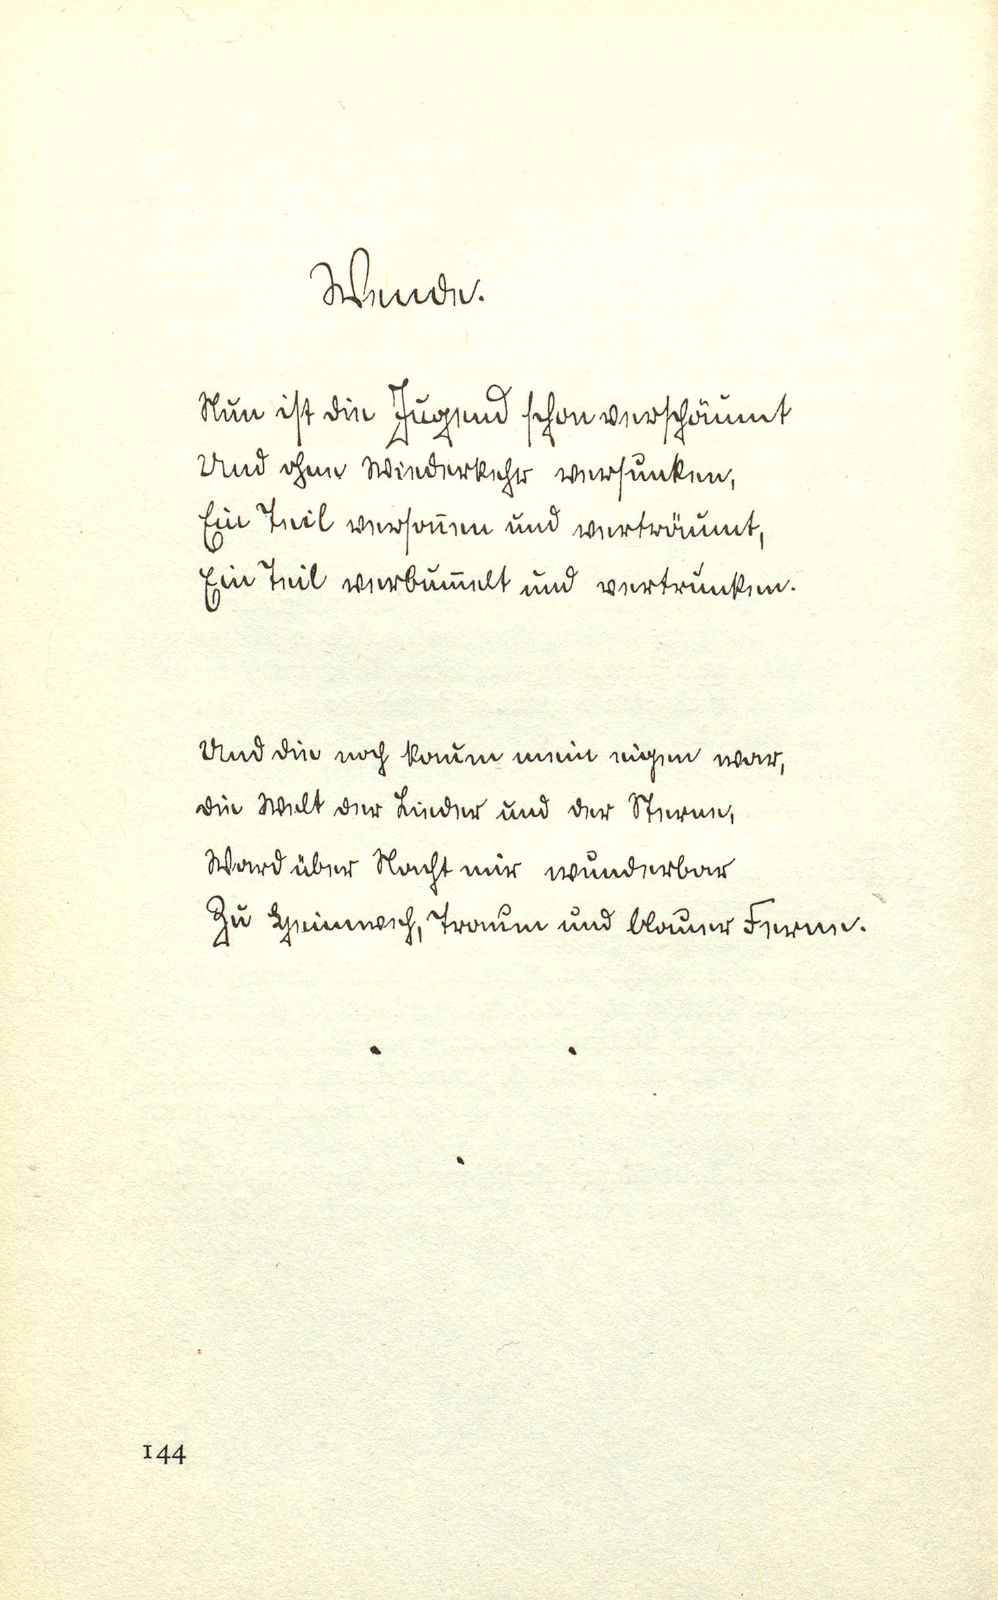 Wende.
Nun ist die Jugend schon verschäumt
Und ohne Wiederkehr versunken,
Ein Teil verson̅en und verträumt,
Ein Teil verbum̅elt und vertrunken.
Und die noch kaum mein eigen war,
die Welt der Lieder und der Sterne,
Ward über Nacht mir wunderbar
Zu Heimweh, Traum und blauer Ferne.
144